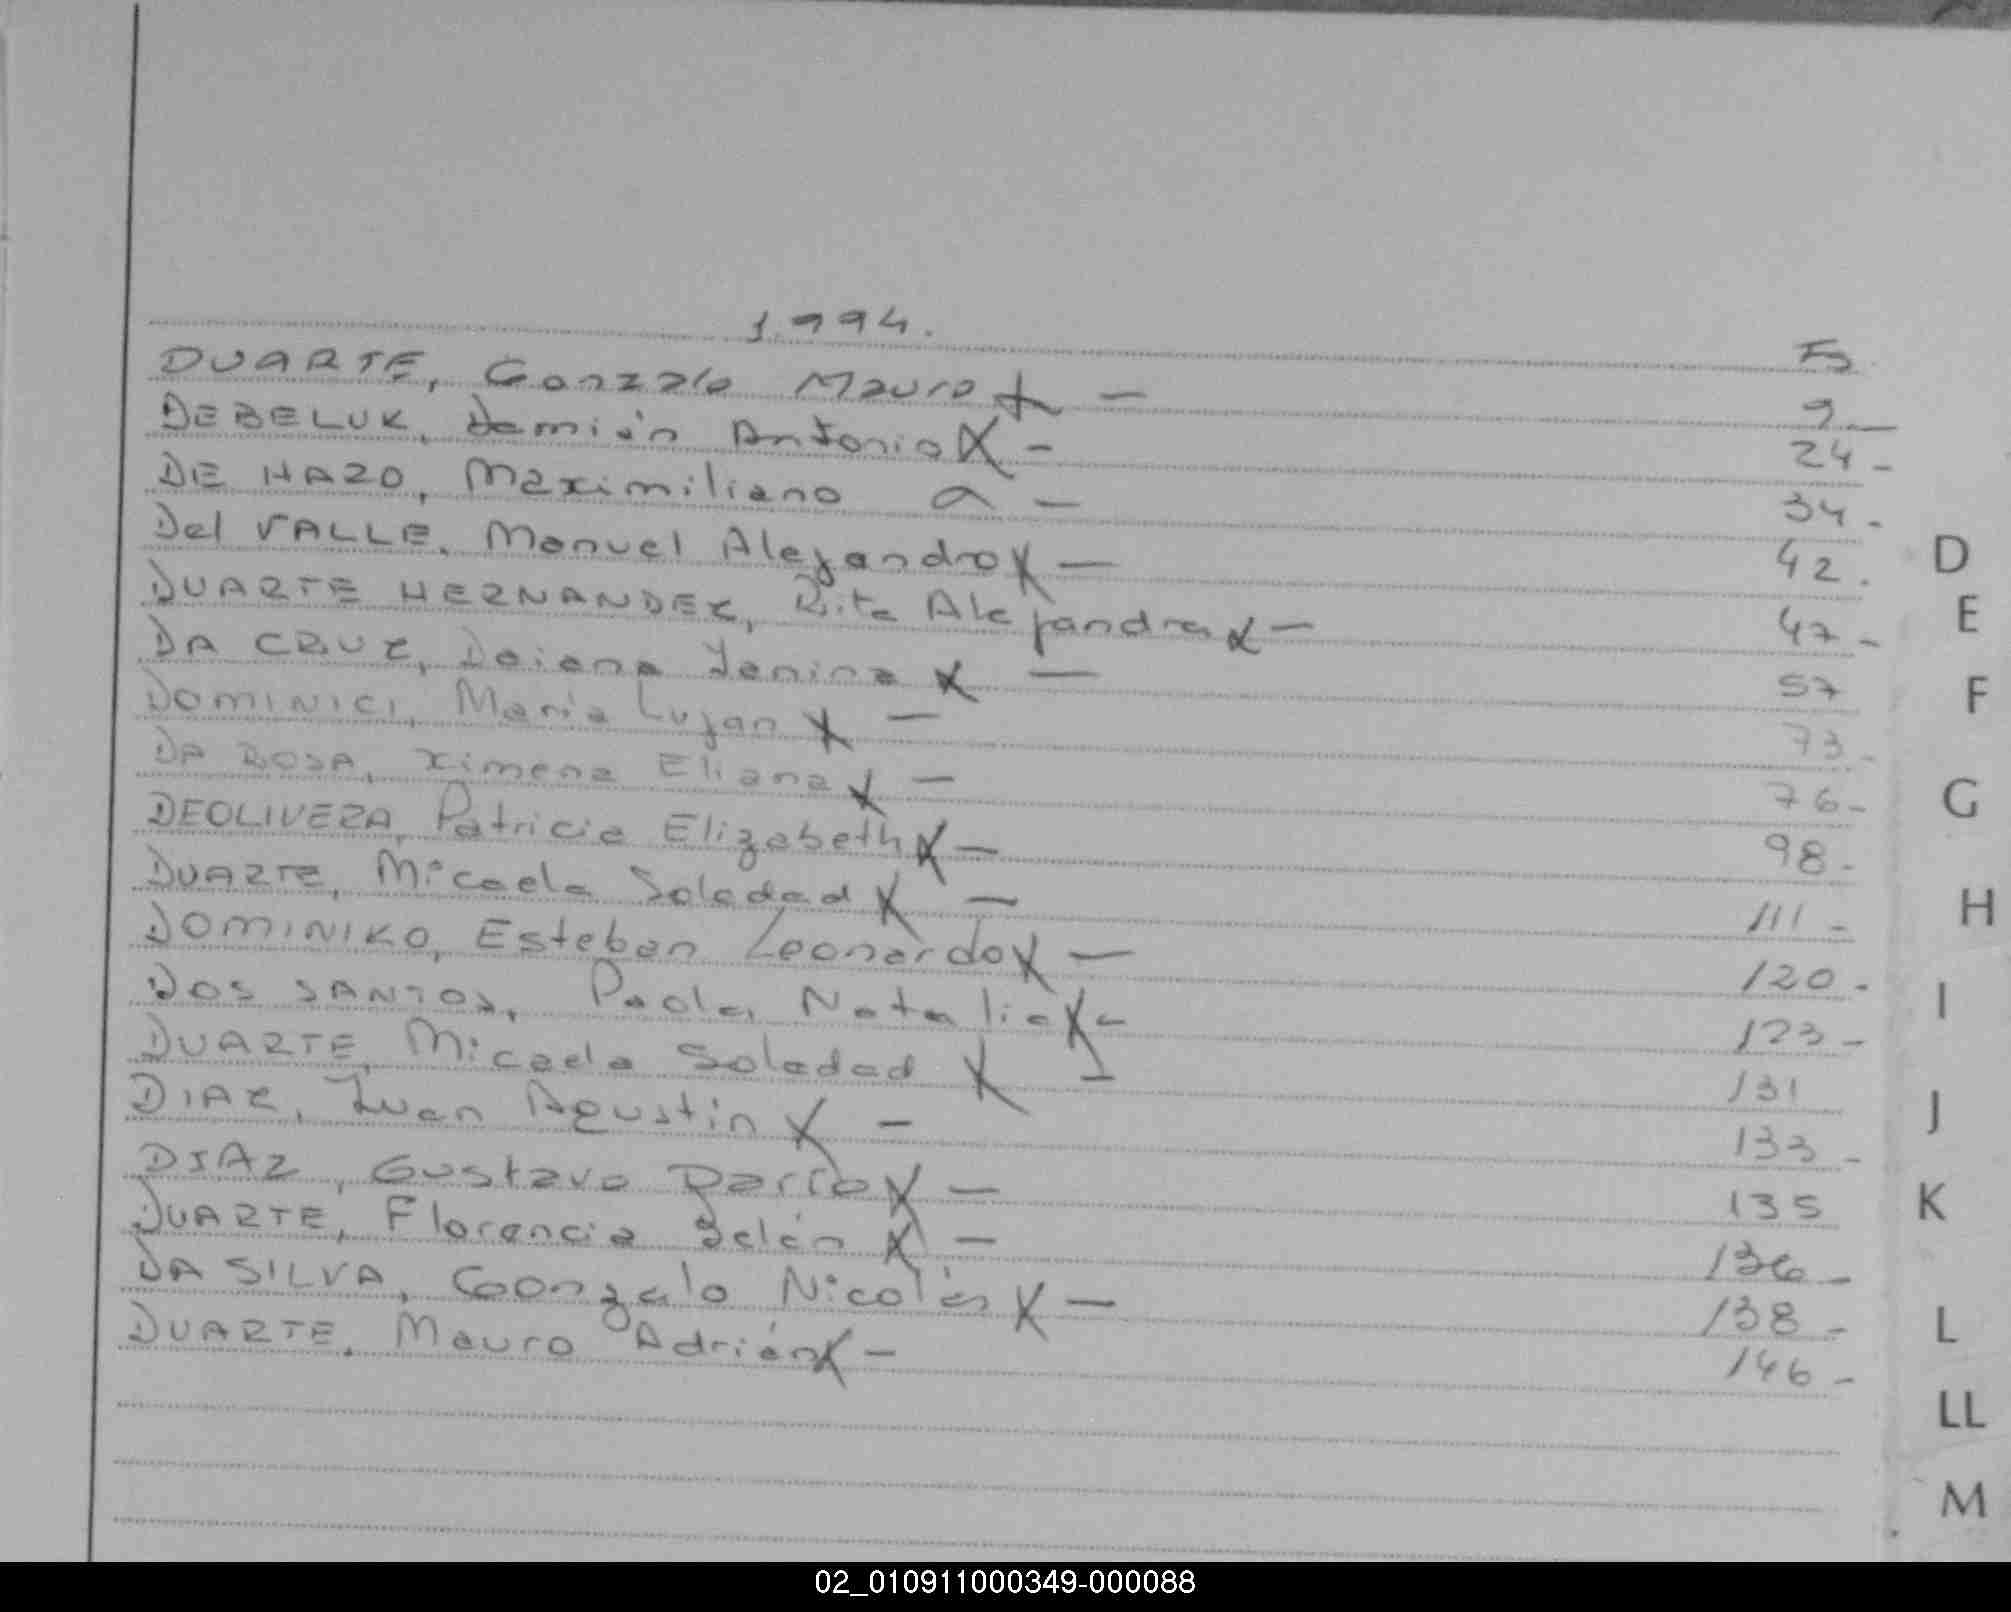 1.994.
Fs
DUARTE, Gonzalo Mauro X — 9 —
DEBELUK, Damián Antonio X — 24 -
DE HAZO, Maximiliano — 34 -
Del VALLE, Manuel Alejandro X — 42.
DUARTE HERNANDEZ, Rita Alejandra X — 47 -
DA CRUZ, Daiana Janina X — 57
DOMINICI, María Lujan X — 73 -
DA ROSA, Ximena Eliana X — 76 -
DEOLIVERA, Patricia Elizabeth X — 98 -
DUARTE, Micaela Soledad X — 111 -
DOMINIKO, Esteban Leonardo X — 120 -
DOS SANTOS, Paola Natalia X - 123 -
DUARTE, Micaela Soledad X — 131
DIAZ, Juan Agustín X — 133 -
DIAZ, Gustavo Darío X — 135
DUARTE, Florencia Belén X — 136 -
DA SILVA, Gonzalo Nicolás X — 138 -
DUARTE, Mauro Adrián X — 146 -
D
E
F
G
H
I
J
K
L
LL
M
02_010911000349-000088